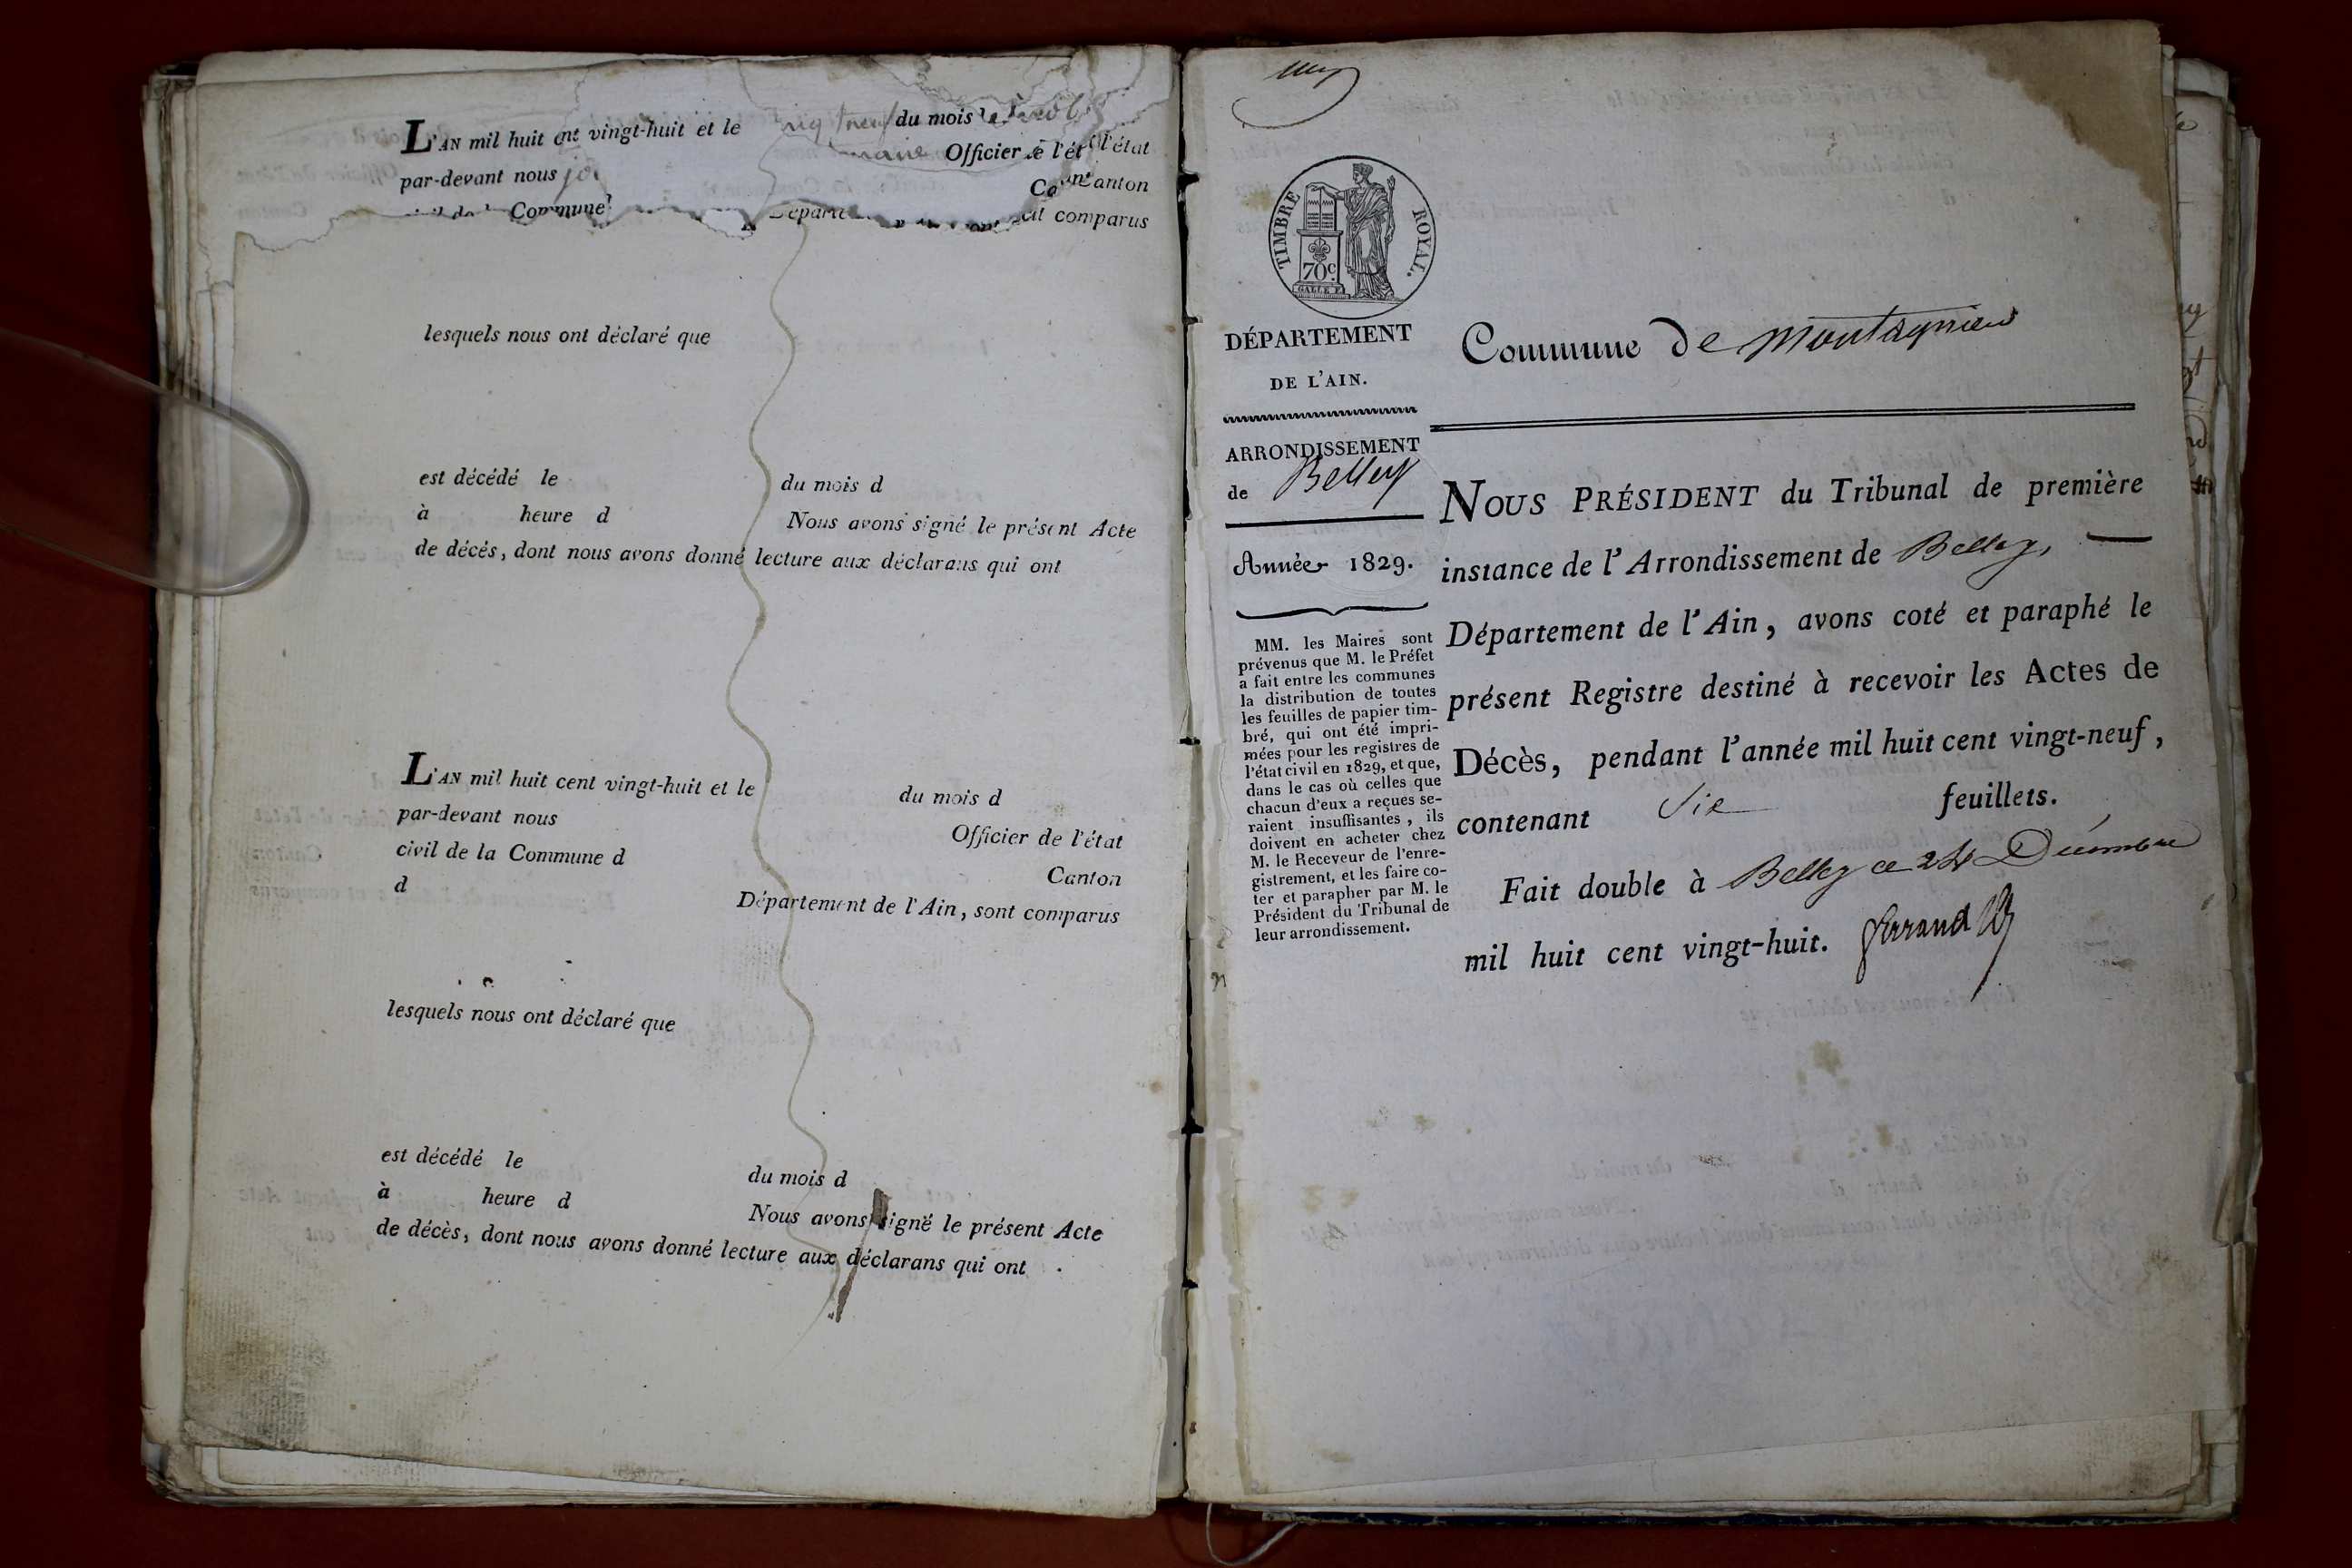 L'AN mil huit cent vingt-huit et le du mois
par-devant nous Officier de l'état
Commune Canton
comparus
lesquels nous ont déclaré que
est décédé le du mois d
à heure d Nous avons signé le présent Acte
de décès, dont nous avons donné lecture aux déclarans qui ont
L'AN mil huit cent vingt-huit et le du mois d
par-devant nous Officier de l'état
civil de la Commune d Canton
d Département de l'Ain, sont comparus
lesquels nous ont déclaré que
est décédé le du mois d
à heure d Nous avons signé le présent Acte
de décès, dont nous avons donné lecture aux déclarans qui ont
TIMBRE ROYAL.
70c.
GALLE F.
DÉPARTEMENT
DE L'AIN.
ARRONDISSEMENT
de Belley
Année 1829.
MM. les Maires sont
prévenus que M. le Préfet
a fait entre les communes
la distribution de toutes
les feuilles de papier tim-
bré, qui ont été impri-
mées pour les registres de
l'état civil en 1829, et que,
dans le cas où celles que
chacun d'eux a reçues se-
raient insuffisantes, ils
doivent en acheter chez
M. le Receveur de l'enre-
gistrement, et les faire co-
ter et parapher par M. le
Président du Tribunal de
leur arrondissement.
Commune de Montagnieu
NOUS PRÉSIDENT du Tribunal de première
instance de l'Arrondissement de Belley,
Département de l'Ain, avons coté et paraphé le
présent Registre destiné à recevoir les Actes de
Décès, pendant l'année mil huit cent vingt-neuf,
contenant Six feuillets.
Fait double à Belley ce 24 Décembre
mil huit cent vingt-huit. Ferrand